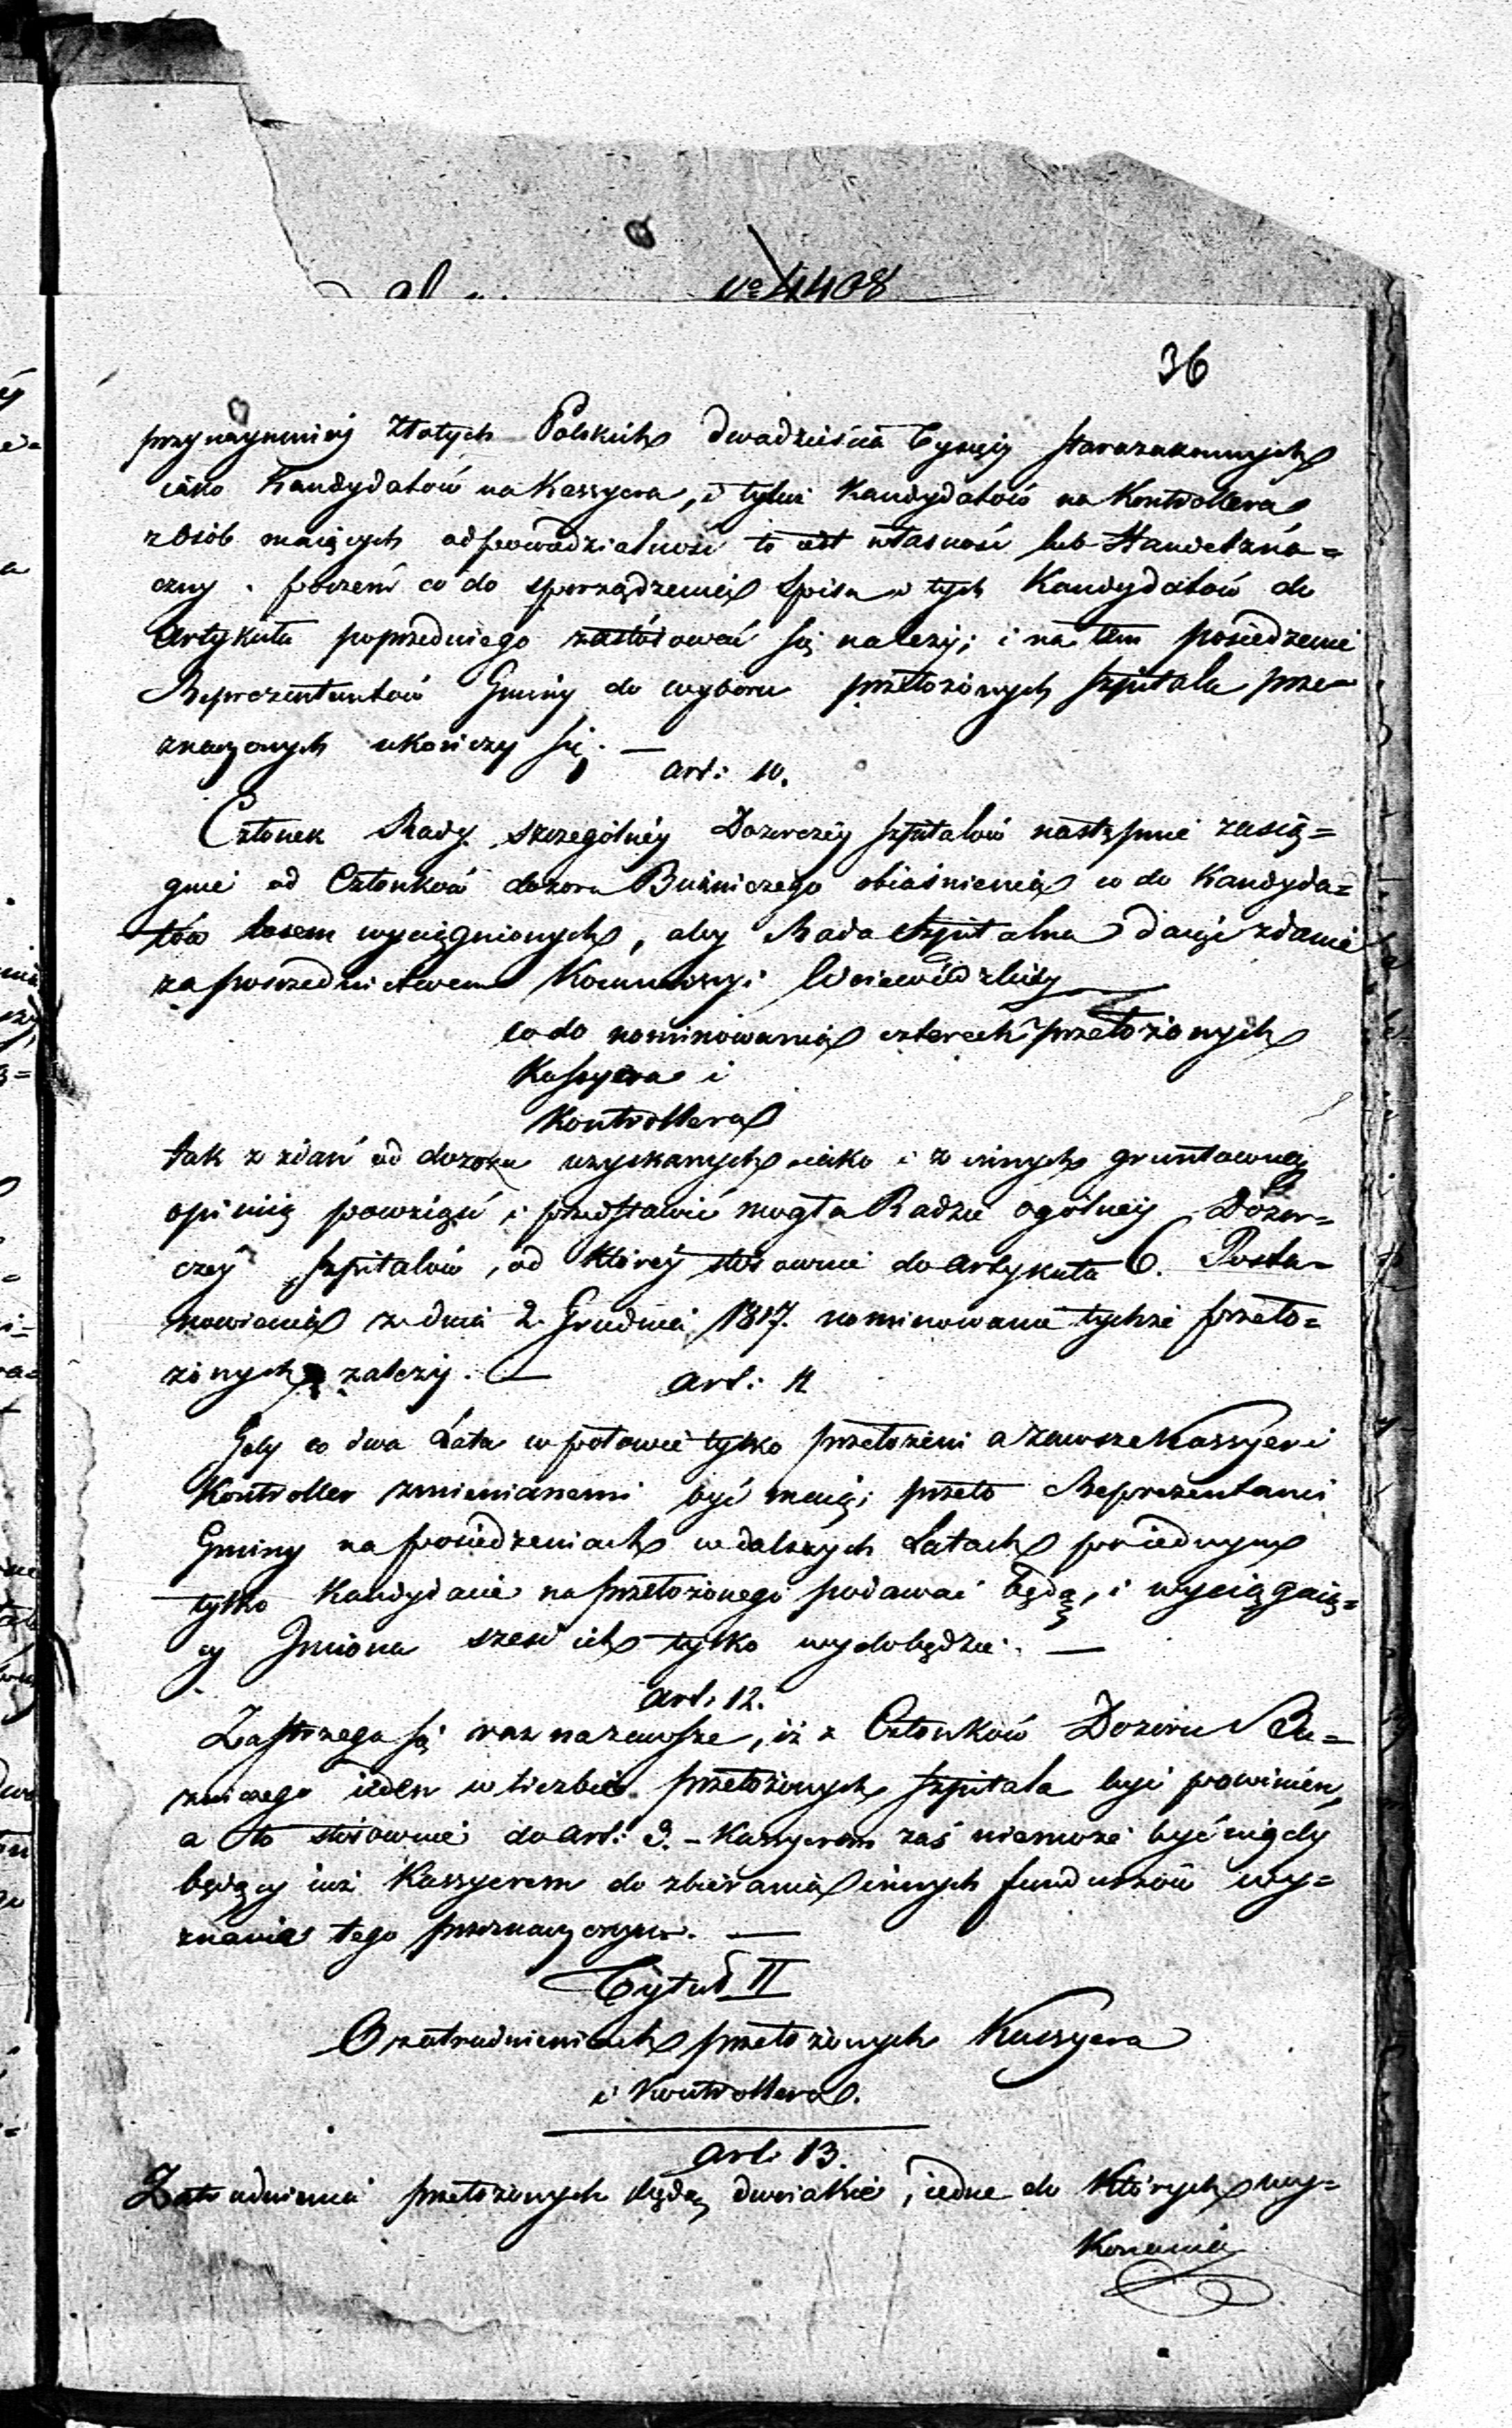 No 4408
36
przynaymniey Złotych Polskich dwadzieścia Tysięcy starozakonnych
iako Kandydatów na Kassyera, i tyluż Kandydatów na Kontrollera
z osób maiących odpowiedzialność to iest własność lub Handel zna=
czny. poczem co do sporządzenia Spisu tych Kandydatów do
Artykułu poprzedniego zastósować się należy; i na tem posiedzenie
Reprezentantów Gminy do wyboru przełożonych szpitala prze=
znaczonych ukończy się. —
Art: 10.
Członek Rady szczególney Dozorczey szpitalów następnie zasię=
gnie od Członków dozoru Bużniczego obiaśnienia co do Kandyda=
tów losem wyciągnionych, aby Rada Szpitalna daiąc zdanie
za posrzednictwem Kommissyi Woiewódzkiey
co do nominowania czterech przełożonych
Kassyera i
Kontrollera
tak z zdań od dozoru uzyskanych iako i z innych gruntowną
opinią powziąść i przedstawić mogła Radzie ogólney Dozor=
czey szpitalów, od którey stósownie do Artykułu 6. Posta=
nowienia z dnia 2. Grudnia 1817. nominowanie tychże przeło=
żonych zależy. —
Art: 11
Gdy co dwa Lata w połowie tylko przełożeni a zawsze Kassyer i
Kontroller zmienianemi być maią; przeto Reprezentanci
Gminy na posiedzeniach w dalszych Latach po iednym
tylko Kandydacie na przełożonego podawać będą, i wyciągaią=
cy Imiona sześć ich tylko wydobędzie. —
Art: 12.
Zastrzega się raz na zawsze, iż z Członków Dozoru Bu=
żniczego ieden w liczbie przełożonych szpitala być powinien,
a to stósownie do Art: 3. – Kassyerem zaś niemoże być nigdy
będący iuż Kassyerem do zbierania innych funduszów wy=
znania tego przeznaczonym. —
Tytuł II
O zatrudnieniach przełożonych Kassyera
i Kontrollera.
Art: 13.
Zatrudnienia przełożonych będą dwoiakie, iedne do których wy=
konania